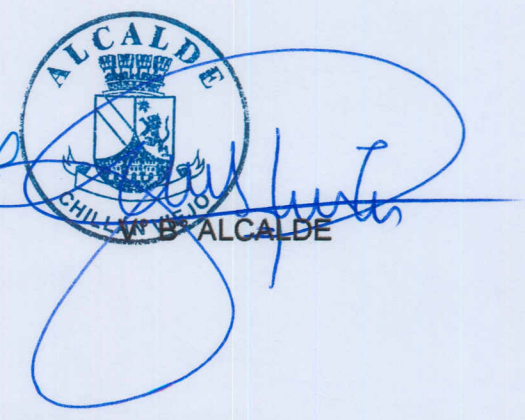 ALCALDE
CHILLAN VIEJO
V° B° ALCALDE